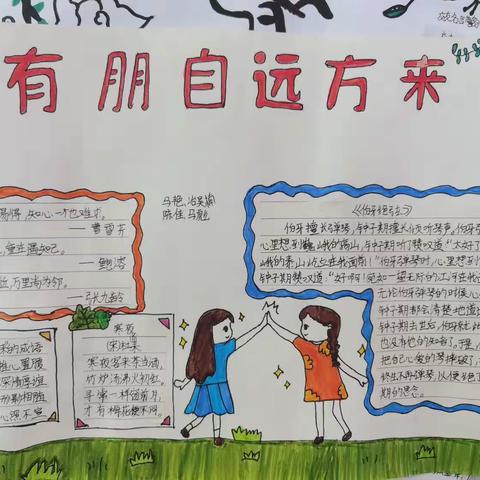 有朋自远方来
马艳、冶昊翰
陈佳、马彪
易得,知心一个也难求。
——曹雪芹
——鲍溶
万里尚为邻。
——张九龄
寒夜
宋 杜耒
寒夜客来茶当酒,
竹炉汤沸火初红。
寻常一样窗前月,
才有梅花便不同。
的成语
心置腹
《伯牙绝弦》
伯牙擅长弹琴,钟子期擅长
心里想到巍峨的高山,钟子期听了赞叹道:“太好了
峨的泰山屹立在我面前!”伯牙弹琴时,心里想到
钟子期赞叹道:“好啊!宛如一望无际的江河在我
无论伯牙弹琴的时候心
钟子期都会清楚地道
钟子期去世后,伯牙就此
也没有他的知音了。于是,
把自己心爱的琴摔破了,
终生不再弹琴,以便
期的思念。